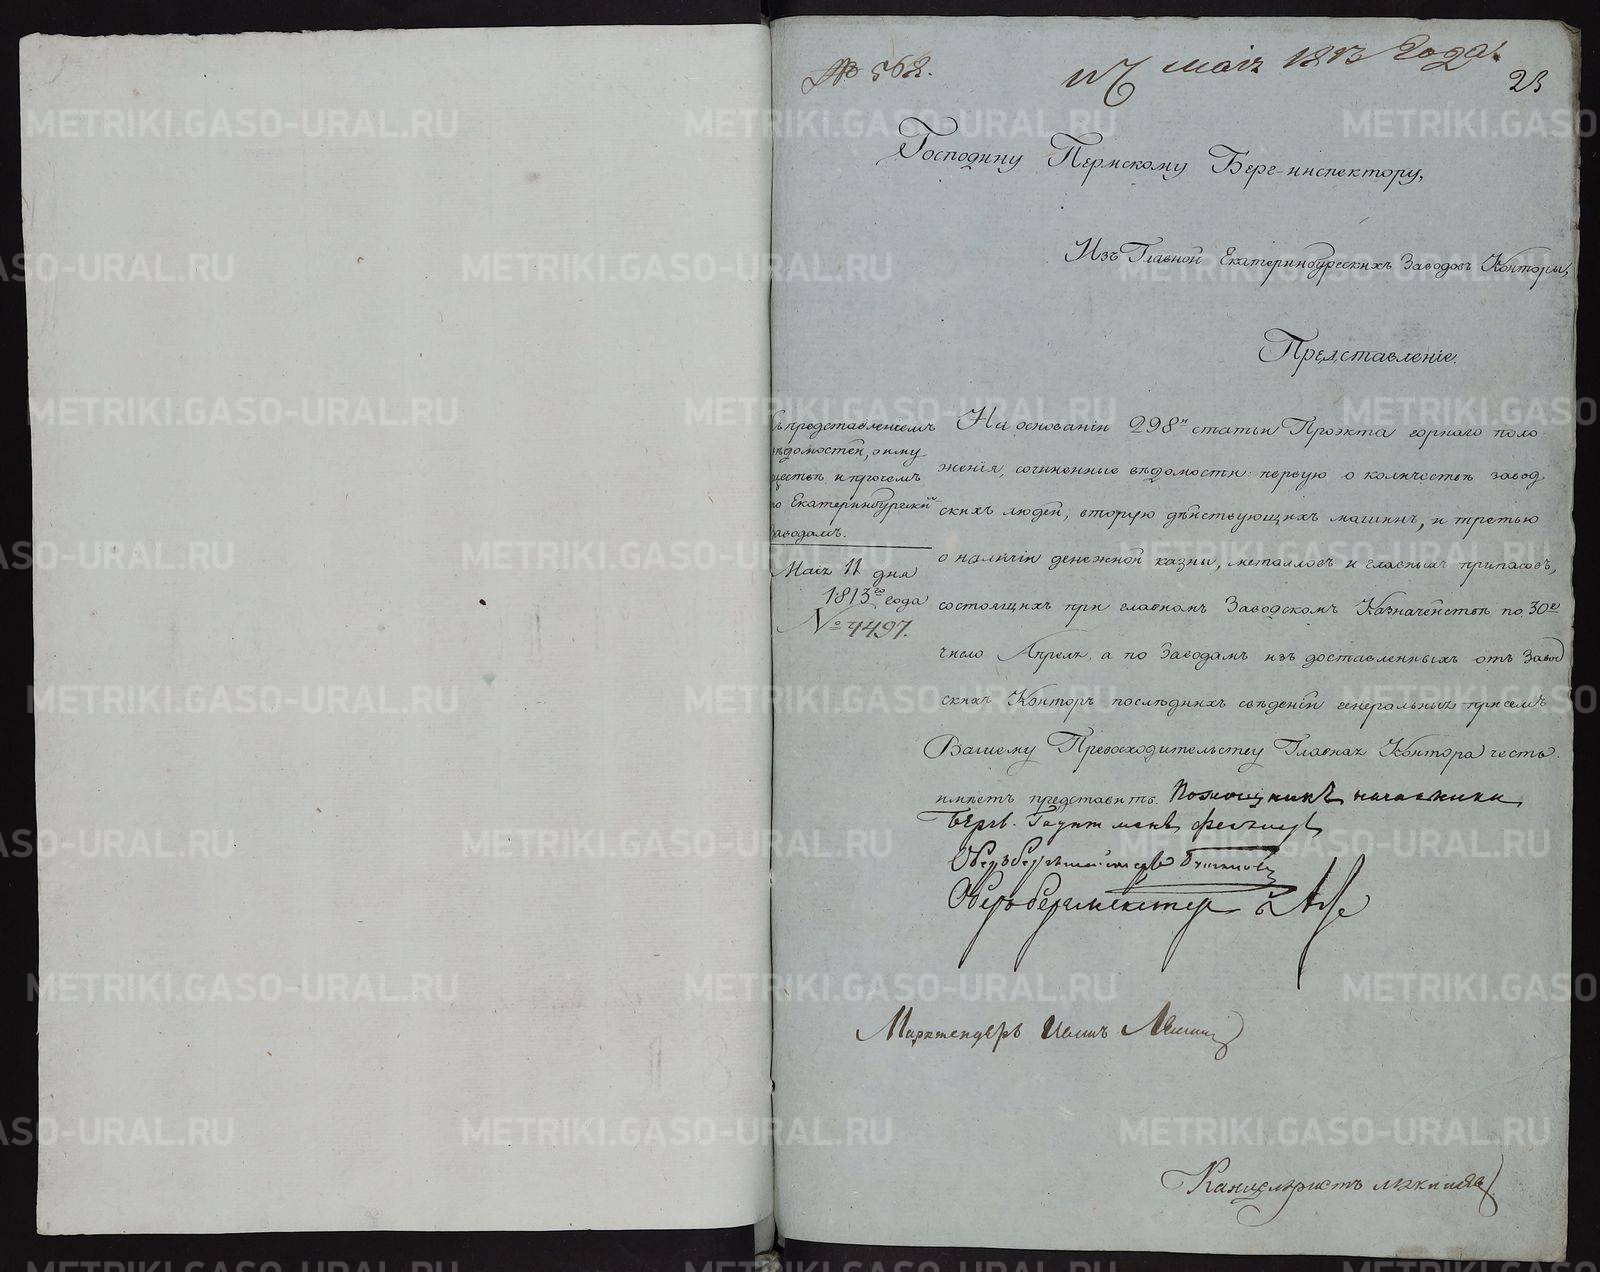 № 568.
Маія 1813 Года.
23
Господину Пермскому Берг-инспектору,
Изъ Главной Екатеринбургскихъ Заводовъ Конторы,
Представленіе.
съ представленіемъ
вѣдомостей, о иму
ществѣ и прочемъ
по Екатеринбургскимъ
Заводамъ.
Маія 11 дня
1813го года
№ 4497.
На основаніи 298й статьи Проэкта горнаго поло
женія, сочиненные вѣдомости: первую о количествѣ завод
скихъ людей, вторую дѣйствующихъ машинъ, и третью
о наличіи денежной казны, металловъ и главныхъ припасовъ,
состоящихъ при главномъ Заводскомъ Казначействѣ по 30е
число Апреля, а по Заводамъ изъ доставленныхъ отъ Завод
скихъ Конторъ послѣднихъ свѣденій генеральныя при семъ
Вашему Превосходительству Главная Контора честь
имѣетъ представить. Помощникъ начальника
Бергъ-Гауптманъ
Оберъбергмейстеръ
Оберъбергмейстеръ
Марктендеръ Иванъ
Канцеляристъ
METRIKI.GASO-URAL.RU